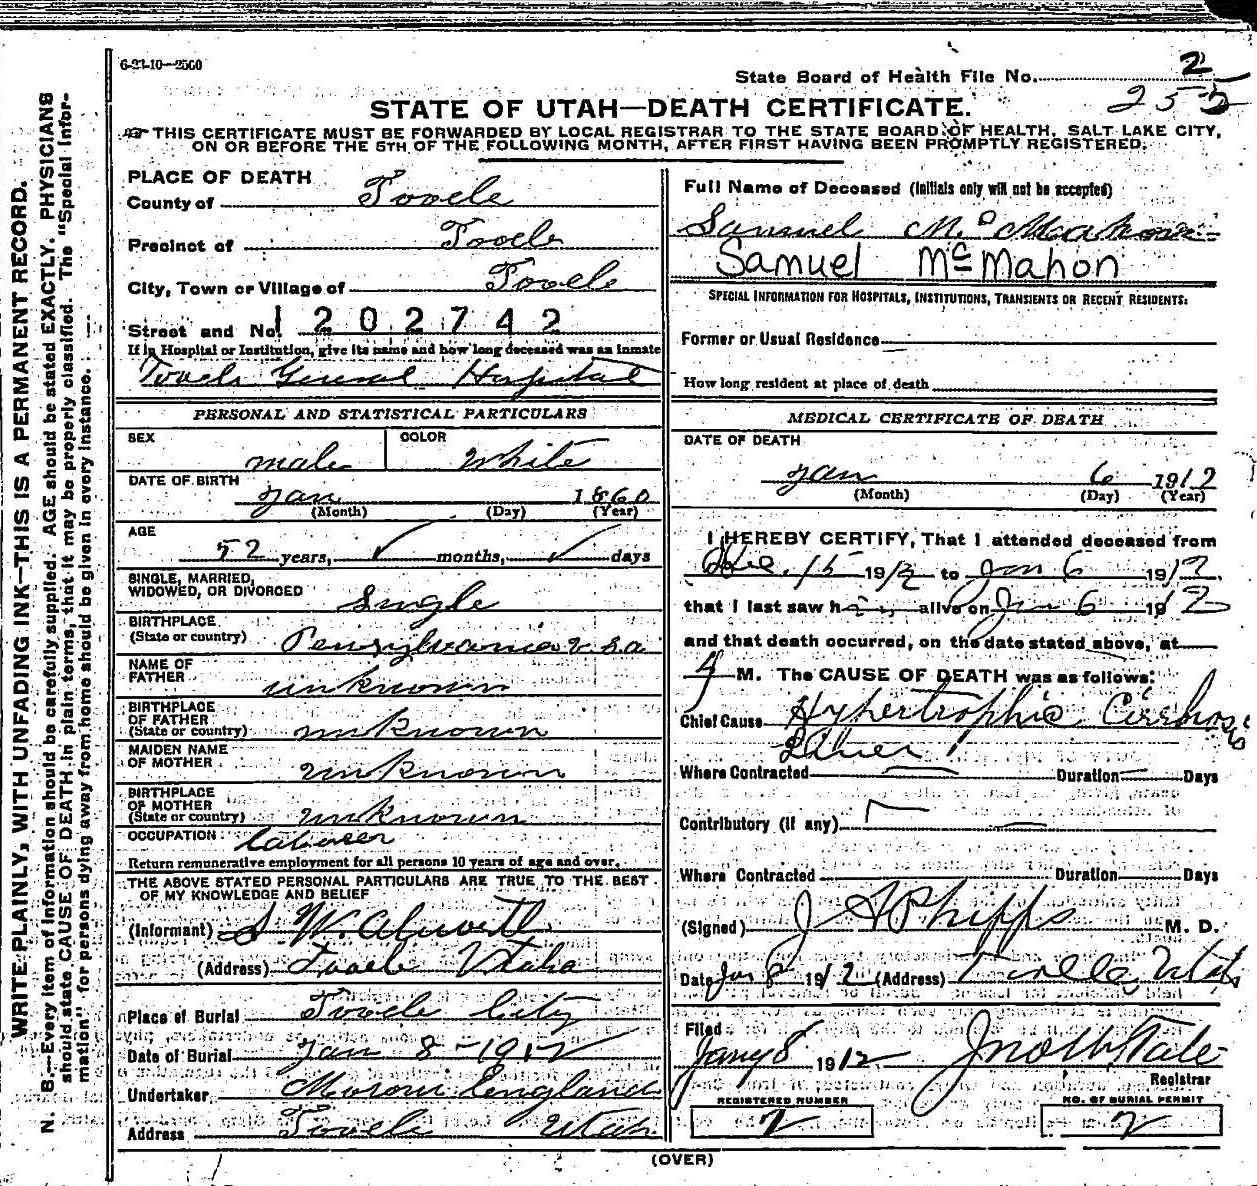 6-23-10—2500
State Board of Health File No. 2
252
STATE OF UTAH—DEATH CERTIFICATE.
THIS CERTIFICATE MUST BE FORWARDED BY LOCAL REGISTRAR TO THE STATE BOARD OF HEALTH, SALT LAKE CITY,
ON OR BEFORE THE 5TH OF THE FOLLOWING MONTH, AFTER FIRST HAVING BEEN PROMPTLY REGISTERED.
WRITE PLAINLY, WITH UNFADING INK—THIS IS A PERMANENT RECORD.
N. B.—Every item of information should be carefully supplied. AGE should be stated EXACTLY. PHYSICIANS
should state CAUSE OF DEATH in plain terms, that it may be properly classified. The "Special Infor-
mation" for persons dying away from home should be given in every instance.
PLACE OF DEATH
County of Tooele
Precinct of Tooele
City, Town or Village of Tooele
Street and No. 1202742
If in Hospital or Institution, give its name and how long deceased was an inmate
Tooele General Hospital
PERSONAL AND STATISTICAL PARTICULARS
SEX male COLOR White
DATE OF BIRTH
Jan 1860
(Month) (Day) (Year)
AGE
52 years, ✓ months, ✓ days
SINGLE, MARRIED,
WIDOWED, OR DIVORCED Single
BIRTHPLACE
(State or country) Pensylvania U.S.a
NAME OF
FATHER unknown
BIRTHPLACE
OF FATHER
(State or country) unknown
MAIDEN NAME
OF MOTHER unknown
BIRTHPLACE
OF MOTHER
(State or country) unknown
OCCUPATION Laborer
Return remunerative employment for all persons 10 years of age and over.
THE ABOVE STATED PERSONAL PARTICULARS ARE TRUE TO THE BEST
OF MY KNOWLEDGE AND BELIEF
(Informant) S. W.
(Address) Tooele Utah
Place of Burial Tooele City
Date of Burial Jan 8-1912
Undertaker Moroni England
Address Tooele Utah
Full Name of Deceased (Initials only will not be accepted)
Samuel Mc Mahon
Samuel Mc Mahon
SPECIAL INFORMATION FOR HOSPITALS, INSTITUTIONS, TRANSIENTS OR RECENT RESIDENTS:
Former or Usual Residence
How long resident at place of death
MEDICAL CERTIFICATE OF DEATH
DATE OF DEATH
Jan 6 1912
(Month) (Day) (Year)
I HEREBY CERTIFY, That I attended deceased from
Dec. 15 191 to Jan 6 1912
that I last saw him alive on Jan 6 1912
and that death occurred, on the date stated above, at
4 M. The CAUSE OF DEATH was as follows:
Chief Cause Hypertrophic Cirrhosis
Liver
Where Contracted Duration Days
Contributory (if any)
Where Contracted Duration Days
(Signed) J A Phipps M. D.
Date Jan 8 1912 (Address) Tooele, Utah
Filed
Jany 8 1912 Jno
Registrar
REGISTERED NUMBER NO. OF BURIAL PERMIT
2 2
(OVER)